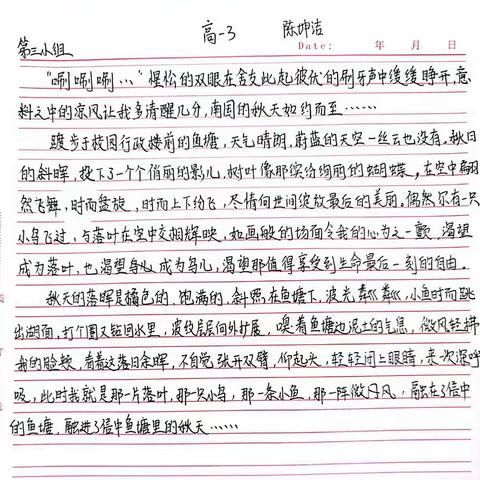 高一3 陈帅洁
第三小组
Date: 年 月 日
"唰唰唰…"惺忪的双眼在舍友此起彼伏的刷牙声中缓缓睁开,意
料之中的凉风让我多清醒几分,南国的秋天如约而至……
踱步于校园行政楼前的鱼塘,天气晴朗,蔚蓝的天空一丝云也没有。秋日
的斜晖,投下了一个个俏丽的影儿,树叶像那缤纷绚丽的蝴蝶,在空中翩
然飞舞,时而盘旋,时而上下纷飞,尽情向世间绽放最后的美丽。偶然尔有一只
小鸟飞过,与落叶在空中交相辉映,如画般的场面令我的心为之一颤,渴望
成为落叶,也渴望身心成为鸟儿,渴望那值得享受到生命最后一刻的自由。
秋天的落晖是橘色的、饱满的,斜照在鱼塘下,波光粼粼,小鱼时而跳
出湖面,打个圈又钻回水里,波纹层层向外扩展,嗅着鱼塘边泥土的气息,微风轻拂
我的脸颊,看着这落日余晖,不自觉张开双臂,仰起头,轻轻闭上眼睛,来一次深呼
吸,此时我就是那一片落叶,那一只小鸟,那一条小鱼,那一阵微风,融在了信中
的鱼塘,融进了信中鱼塘里的秋天……